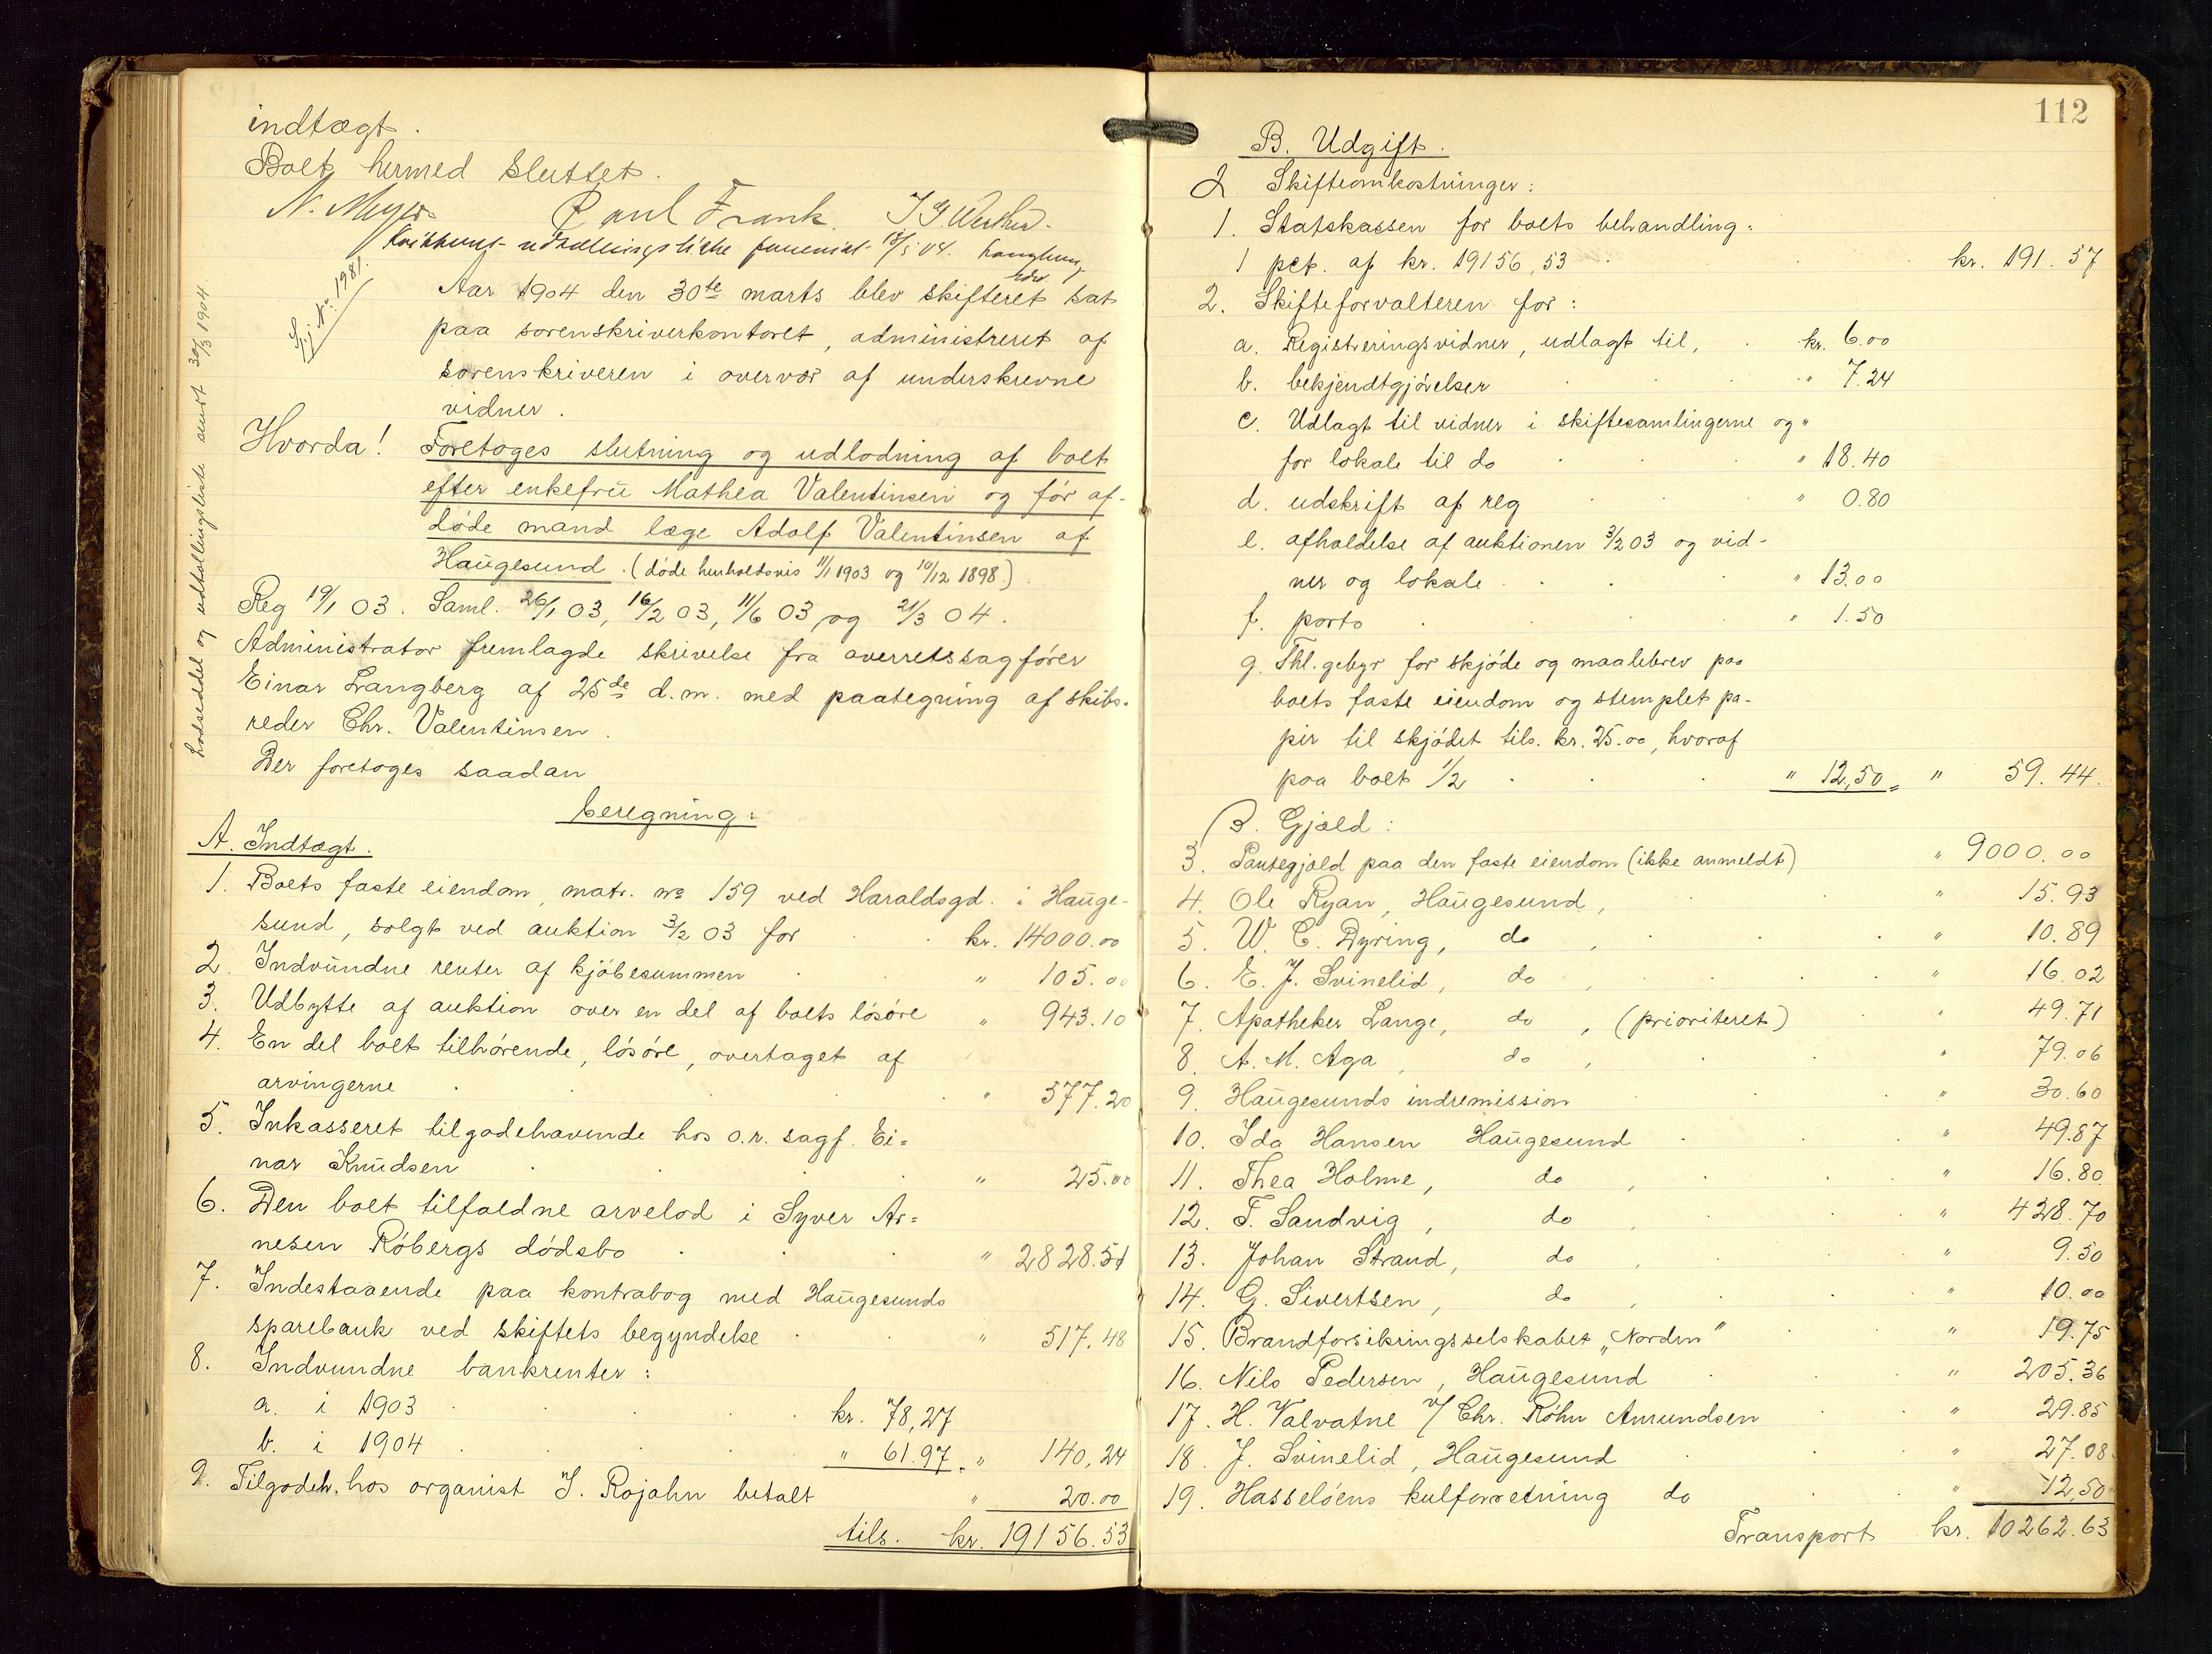 indtægt.
Boet hermed sluttet.
N. Meyer Paul Frank.
udtællingsliste 18/5 04.
Sj. Nr. 1981.
Lodseddel og udtællingsliste sendt 30/3 1904
Aar 1904 den 30te marts blev skifteret sat
paa sorenskriverkontoret, administreret af
sorenskriveren i overvær af underskrevne
vidner.
Hvorda! Foretoges slutning og udlodning af boet
efter enkefru Mathea Valentinsen og før af-
døde mand læge Adolf Valentinsen af
Haugesund. (døde henholdsvis 11/1 1903 og 10/12 1898.)
Reg 19/1 03. Saml. 26/1 03, 16/2 03, 11/6 03 og 21/3 04.
Administrator fremlagde skrivelse fra overretssagfører
Einar Langberg af 25de d.m. med paategning af skibs-
reder Chr. Valentinsen.
Der foretoges saadan
beregning:
A. Indtægt.
1. Boets faste eiendom, matr. no 159 ved Haraldsgd. i Hauge-
sund, solgt ved auktion 3/2 03 for kr. 14000.00
2. Indvundne renter af kjøbesummen " 105.00
3. Udbytte af auktion over en del af boets løsøre " 943.10
4. En del boet tilhørende, løsøre, overtaget af
arvingerne " 577.20
5. Inkasseret tilgodehavende hos o.r. sagf. Ei-
nar Knudsen " 25.00
6. Den boet tilfaldne arvelod i Syver Ar-
nesen Røbergs dødsbo " 2828.51
7. Indestaaende paa kontrabog med Haugesunds
sparebank ved skiftets begyndelse " 517.48
8. Indvundne bankrenter:
a. i 1903 kr. 78,27
b. i 1904 " 61.97 " 140,24
9. Tilgodeh. hos organist J. Rojahn betalt " 20.00
tils. kr. 19156.53
112
B. Udgift.
α Skifteomkostninger:
1. Statskassen for boets behandling:
1 pct. af kr. 19156,53 kr. 191.57
2. Skifteforvalteren for:
a. Registreringsvidner, udlagt til, kr. 6.00
b. bekjendtgjørelser " 7.24
c. Udlagt til vidner i skiftesamlingerne og "
for lokale til do " 18.40
d. udskrift af reg " 0.80
e. afholdelse af auktionen 3/2 03 og vid-
ner og lokale " 13.00
f. porto " 1.50
g. Thl. gebyr for skjøde og maalebrev paa
boets faste eiendom og stemplet pa-
pir til skjødet tils. kr. 25.00, hvoraf
paa boet 1/2 " 12,50 " 59.44.
β. Gjæld:
3. Pantegjæld paa den faste eiendom (ikke anmeldt) " 9000.00
4. Ole Ryan, Haugesund, " 15.93
5. W. C. Dyring, do, " 10.89
6. E. J. Svinelid, do, " 16.02
7. Apotheker Lange, do, (prioriteret) " 49.71
8. A. M. Aga, do, " 79.06
9. Haugesunds indremission " 30.60
10. Ida Hansen Haugesund " 49.87
11. Thea Holme, do, " 16.80
12. T. Sandvig, do, " 428.70
13. Johan Strand, do, " 9.50
14. G. Sivertsen, do, " 10.00
15. Brandforsikringsselskabet „Norden" " 19.75
16. Nils Pedersen, Haugesund " 205.36
17. H. Valvatne v/ Chr. Røhn Amundsen " 29.85
18. J. Svinelid, Haugesund " 27.08
19. Hasseløens kulforretning do " 12,50
Transport kr. 10262.63